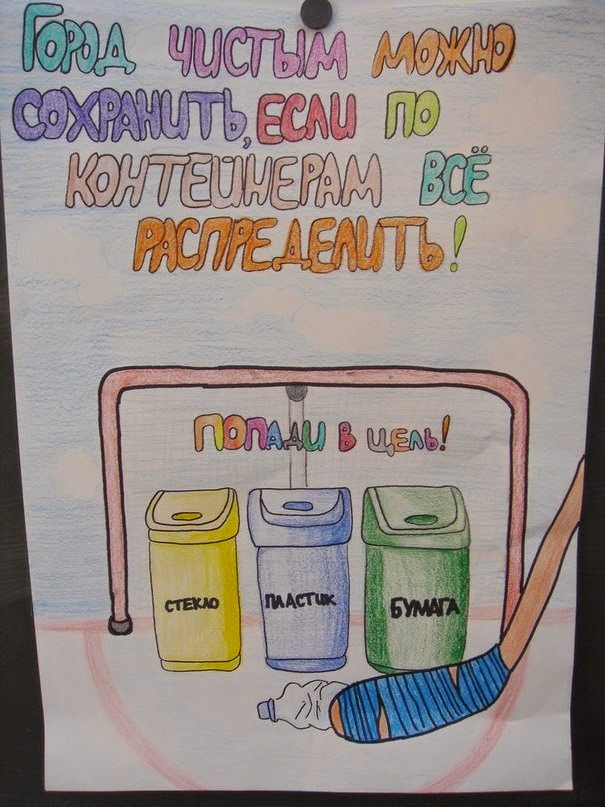 Город чистым можно
сохранить, если по
контейнерам всё
распределить!
Попади в щель!
стекло
пластик
бумага